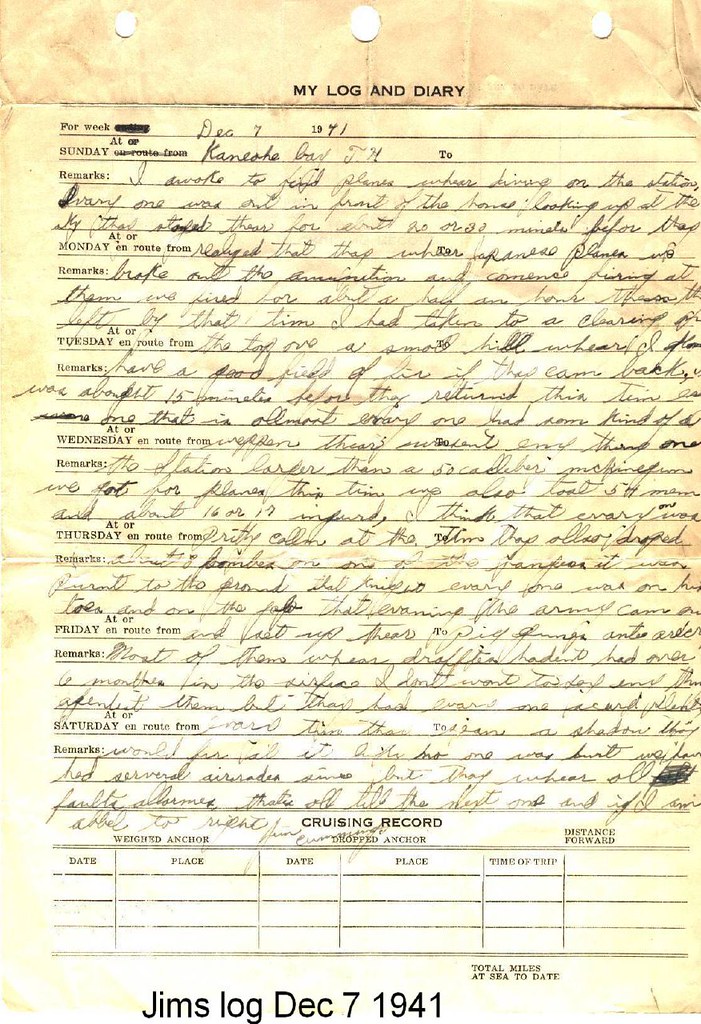 MY LOG AND DIARY
For week Dec 7 1941
At or
SUNDAY en route from Kaneohe bay T H To
Remarks: I awoke to find planes whear diving on the station,
Evary one was out in front of the house looking up at the
sky thay stayed thear for about 20 or 30 minets befor thay
At or
MONDAY en route from realized that thay whear To Japanese planes we
Remarks: broke out the amunition and comence firing at
them we fired for about a half an hour
left by that tim I had taken to a clearing
At or
TUESDAY en route from the top ove a small To hill whear I
Remarks: have a good field of fir if thay cam back,
was about 15 minutes before they returned this tim
one that is ollmost evary one had som kind of a
At or
WEDNESDAY en route from weppen thear To wasent eny thing one
Remarks: the Station larger than a 50 calliber mchinegun
we got for planes this tim we also lost 5 men
and about 16 or 17 injured, I think that evary one was
At or
THURSDAY en route from pritty calm at the To tim thay ollso droped
Remarks: about bombes on one of the it was
burnt to the ground that knight evary one was on his
toes and on the job that evaning the army cam
At or
FRIDAY en route from and set up thear To big gunes
Remarks: Most of them whear draffties hadent had over
6 months in the I dont want to say eny thing
agendist them but thay had evary one
At or
SATURDAY en route from evary tim thay To sean a shadow thay
Remarks: would fir at it no one was hurt we have
had serveral airrades since but thay whear oll
faulls allarmes, thats oll till the next one and if I am
abbel to right Jim Cummings
CRUISING RECORD
WEIGHED ANCHOR DROPPED ANCHOR DISTANCE FORWARD
DATE PLACE DATE PLACE TIME OF TRIP
TOTAL MILES
AT SEA TO DATE
Jims log Dec 7 1941